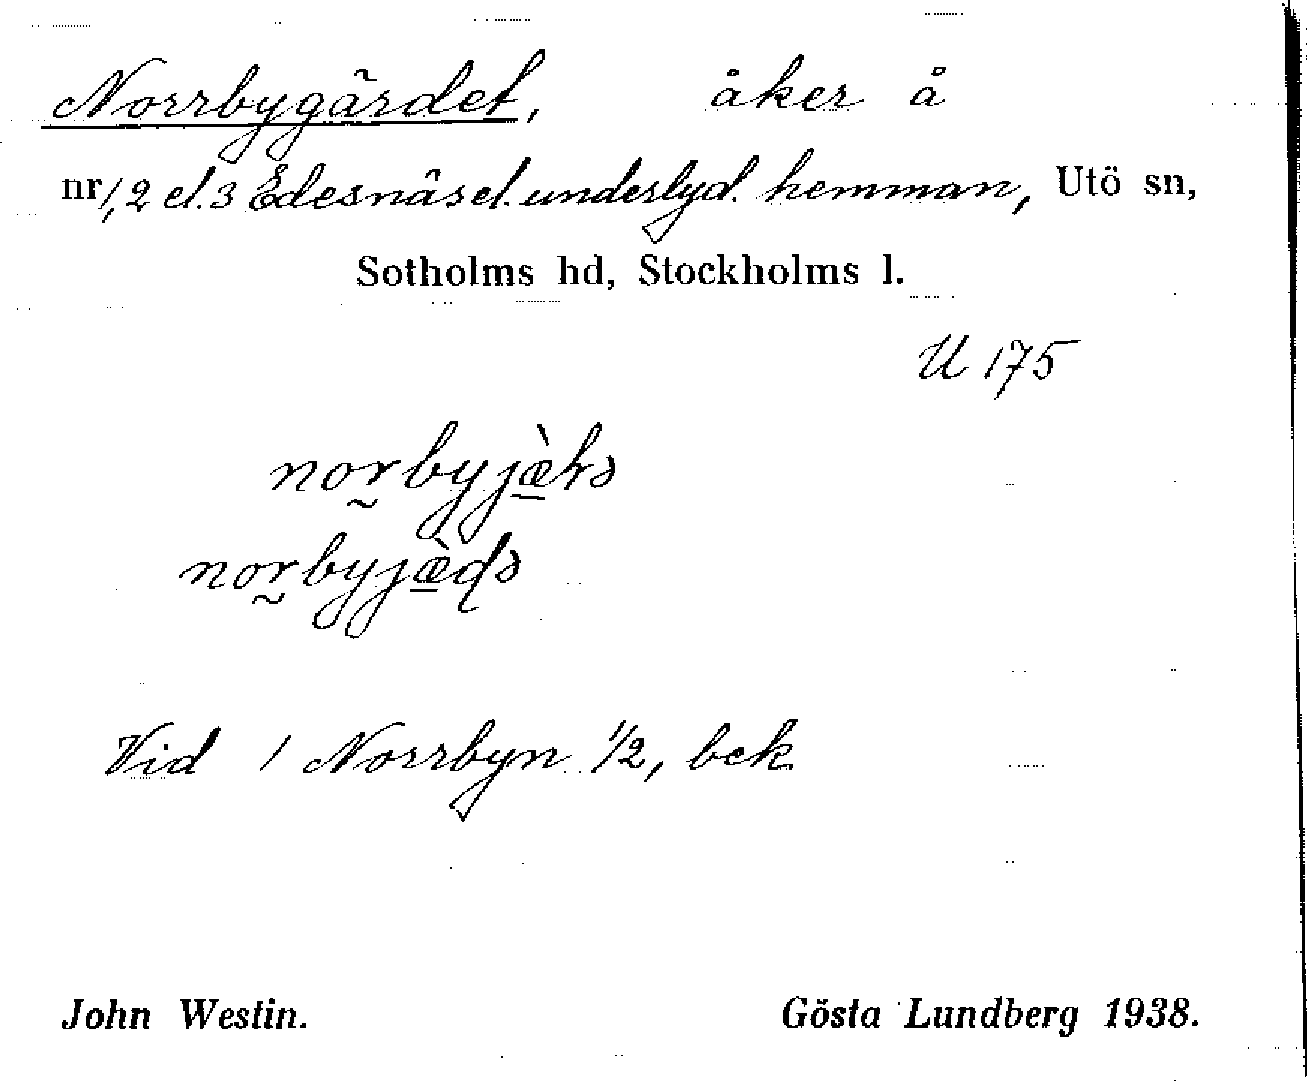 Norrbygärdet, åker å
nr 1, 2 el. 3 Edesnäs el. underlyd. hemman, Utö sn,
Sotholms hd, Stockholms l.
U 175
Vid 1 Norrbyn 1/2, bek
John Westin. Gösta Lundberg 1938.